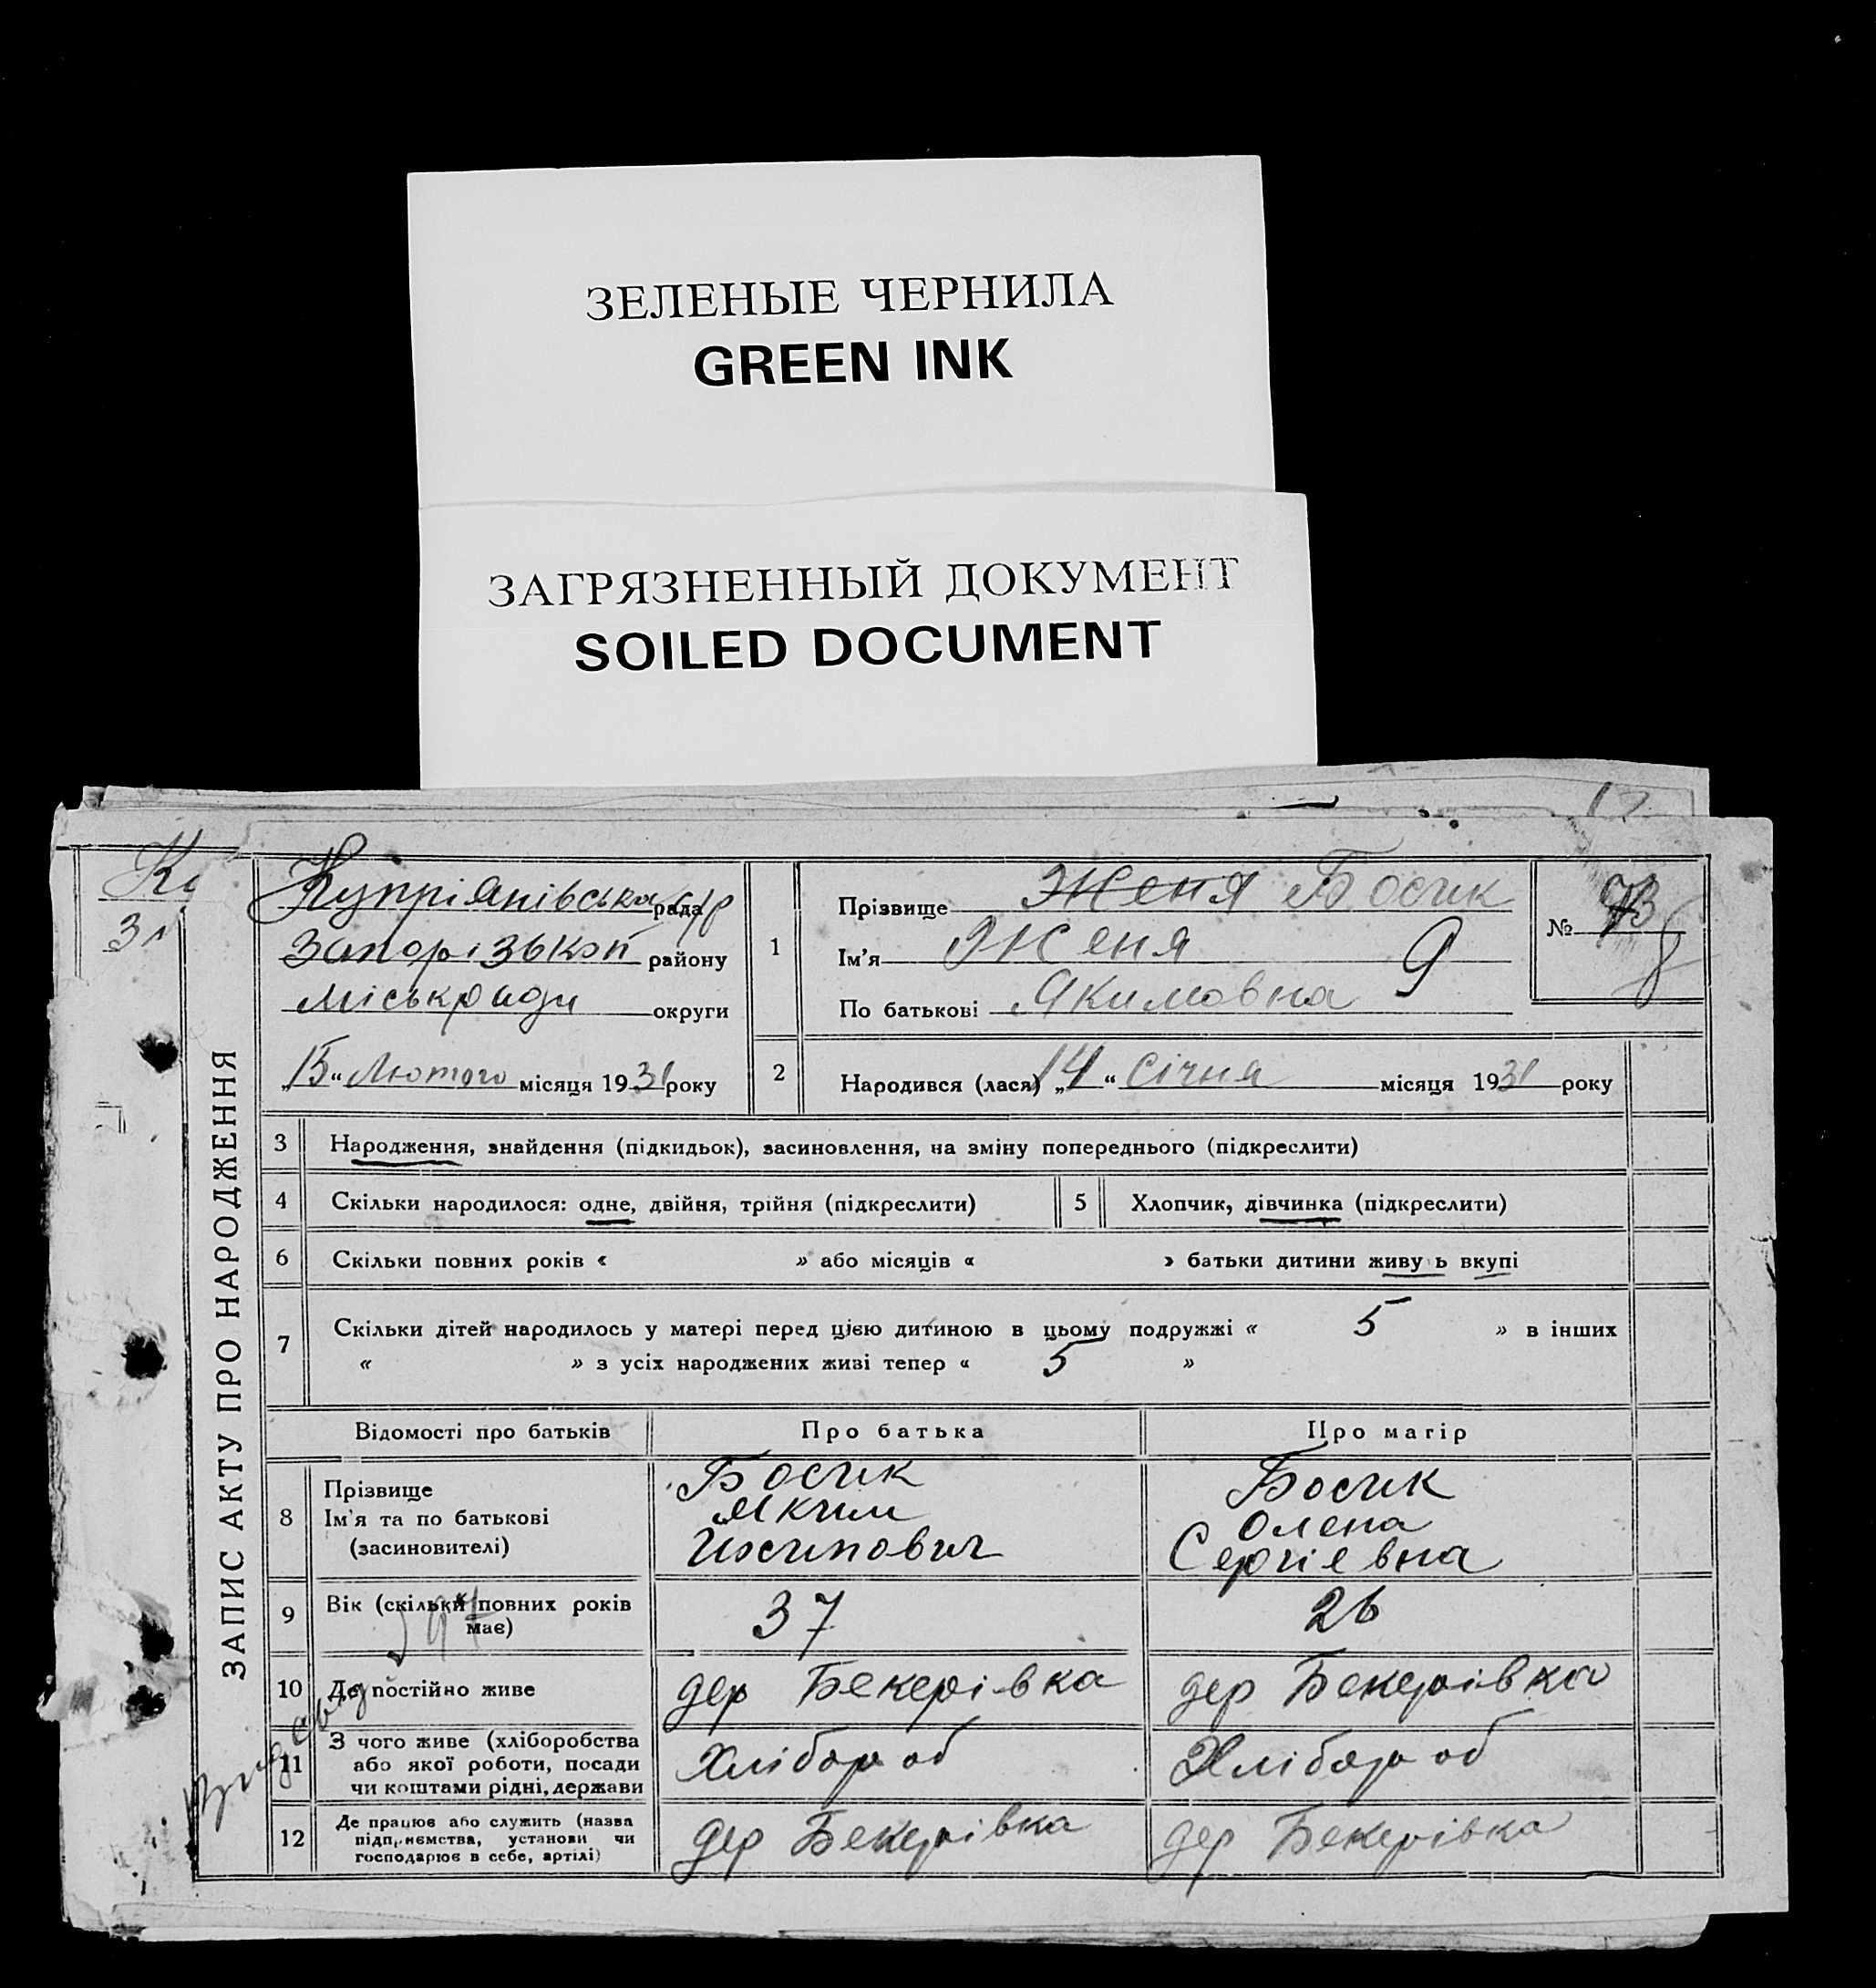 ЗЕЛЕНЫЕ ЧЕРНИЛА
GREEN INK
ЗАГРЯЗНЕННЫЙ ДОКУМЕНТ
SOILED DOCUMENT
ЗАПИС АКТУ ПРО НАРОДЖЕННЯ
Купріянівська с/р рада
Запорізькоп району
міськради округи
„15“ Лютого місяця 1931 року
1
Прізвище Женя Босик
Ім'я Женя 9
По батькові Якимовна
№
2
Народився (лася) „14“ Січня місяця 1931 року
3 Народження, знайдення (підкидьок), засиновлення, на зміну попереднього (підкреслити)
4 Скільки народилося: одне, двійня, трійня (підкреслити) 5 Хлопчик, дівчинка (підкреслити)
6 Скільки повних років « » або місяців « » батьки дитини живу ь вкупі
7 Скільки дітей народилось у матері перед цією дитиною в цьому подружжі « 5 » в інших
« » з усіх народжених живі тепер « 5 »
Відомості про батьків Про батька Про матір
8 Прізвище Босик Босик
Ім'я та по батькові Яким Олена
(засиновителі) Иосипович Сергіевна
9 Вік (скільки повних років має) 37 26
10 Де постійно живе дер Бекерівка дер Бекерівка
11 З чого живе (хліборобства
або якої роботи, посади Хлібороб Хлібороб
чи коштами рідні, держави
12 Де працює або служить (назва
підприємства, установи чи дер Бекерівка дер Бекерівка
господарює в себе, артілі)